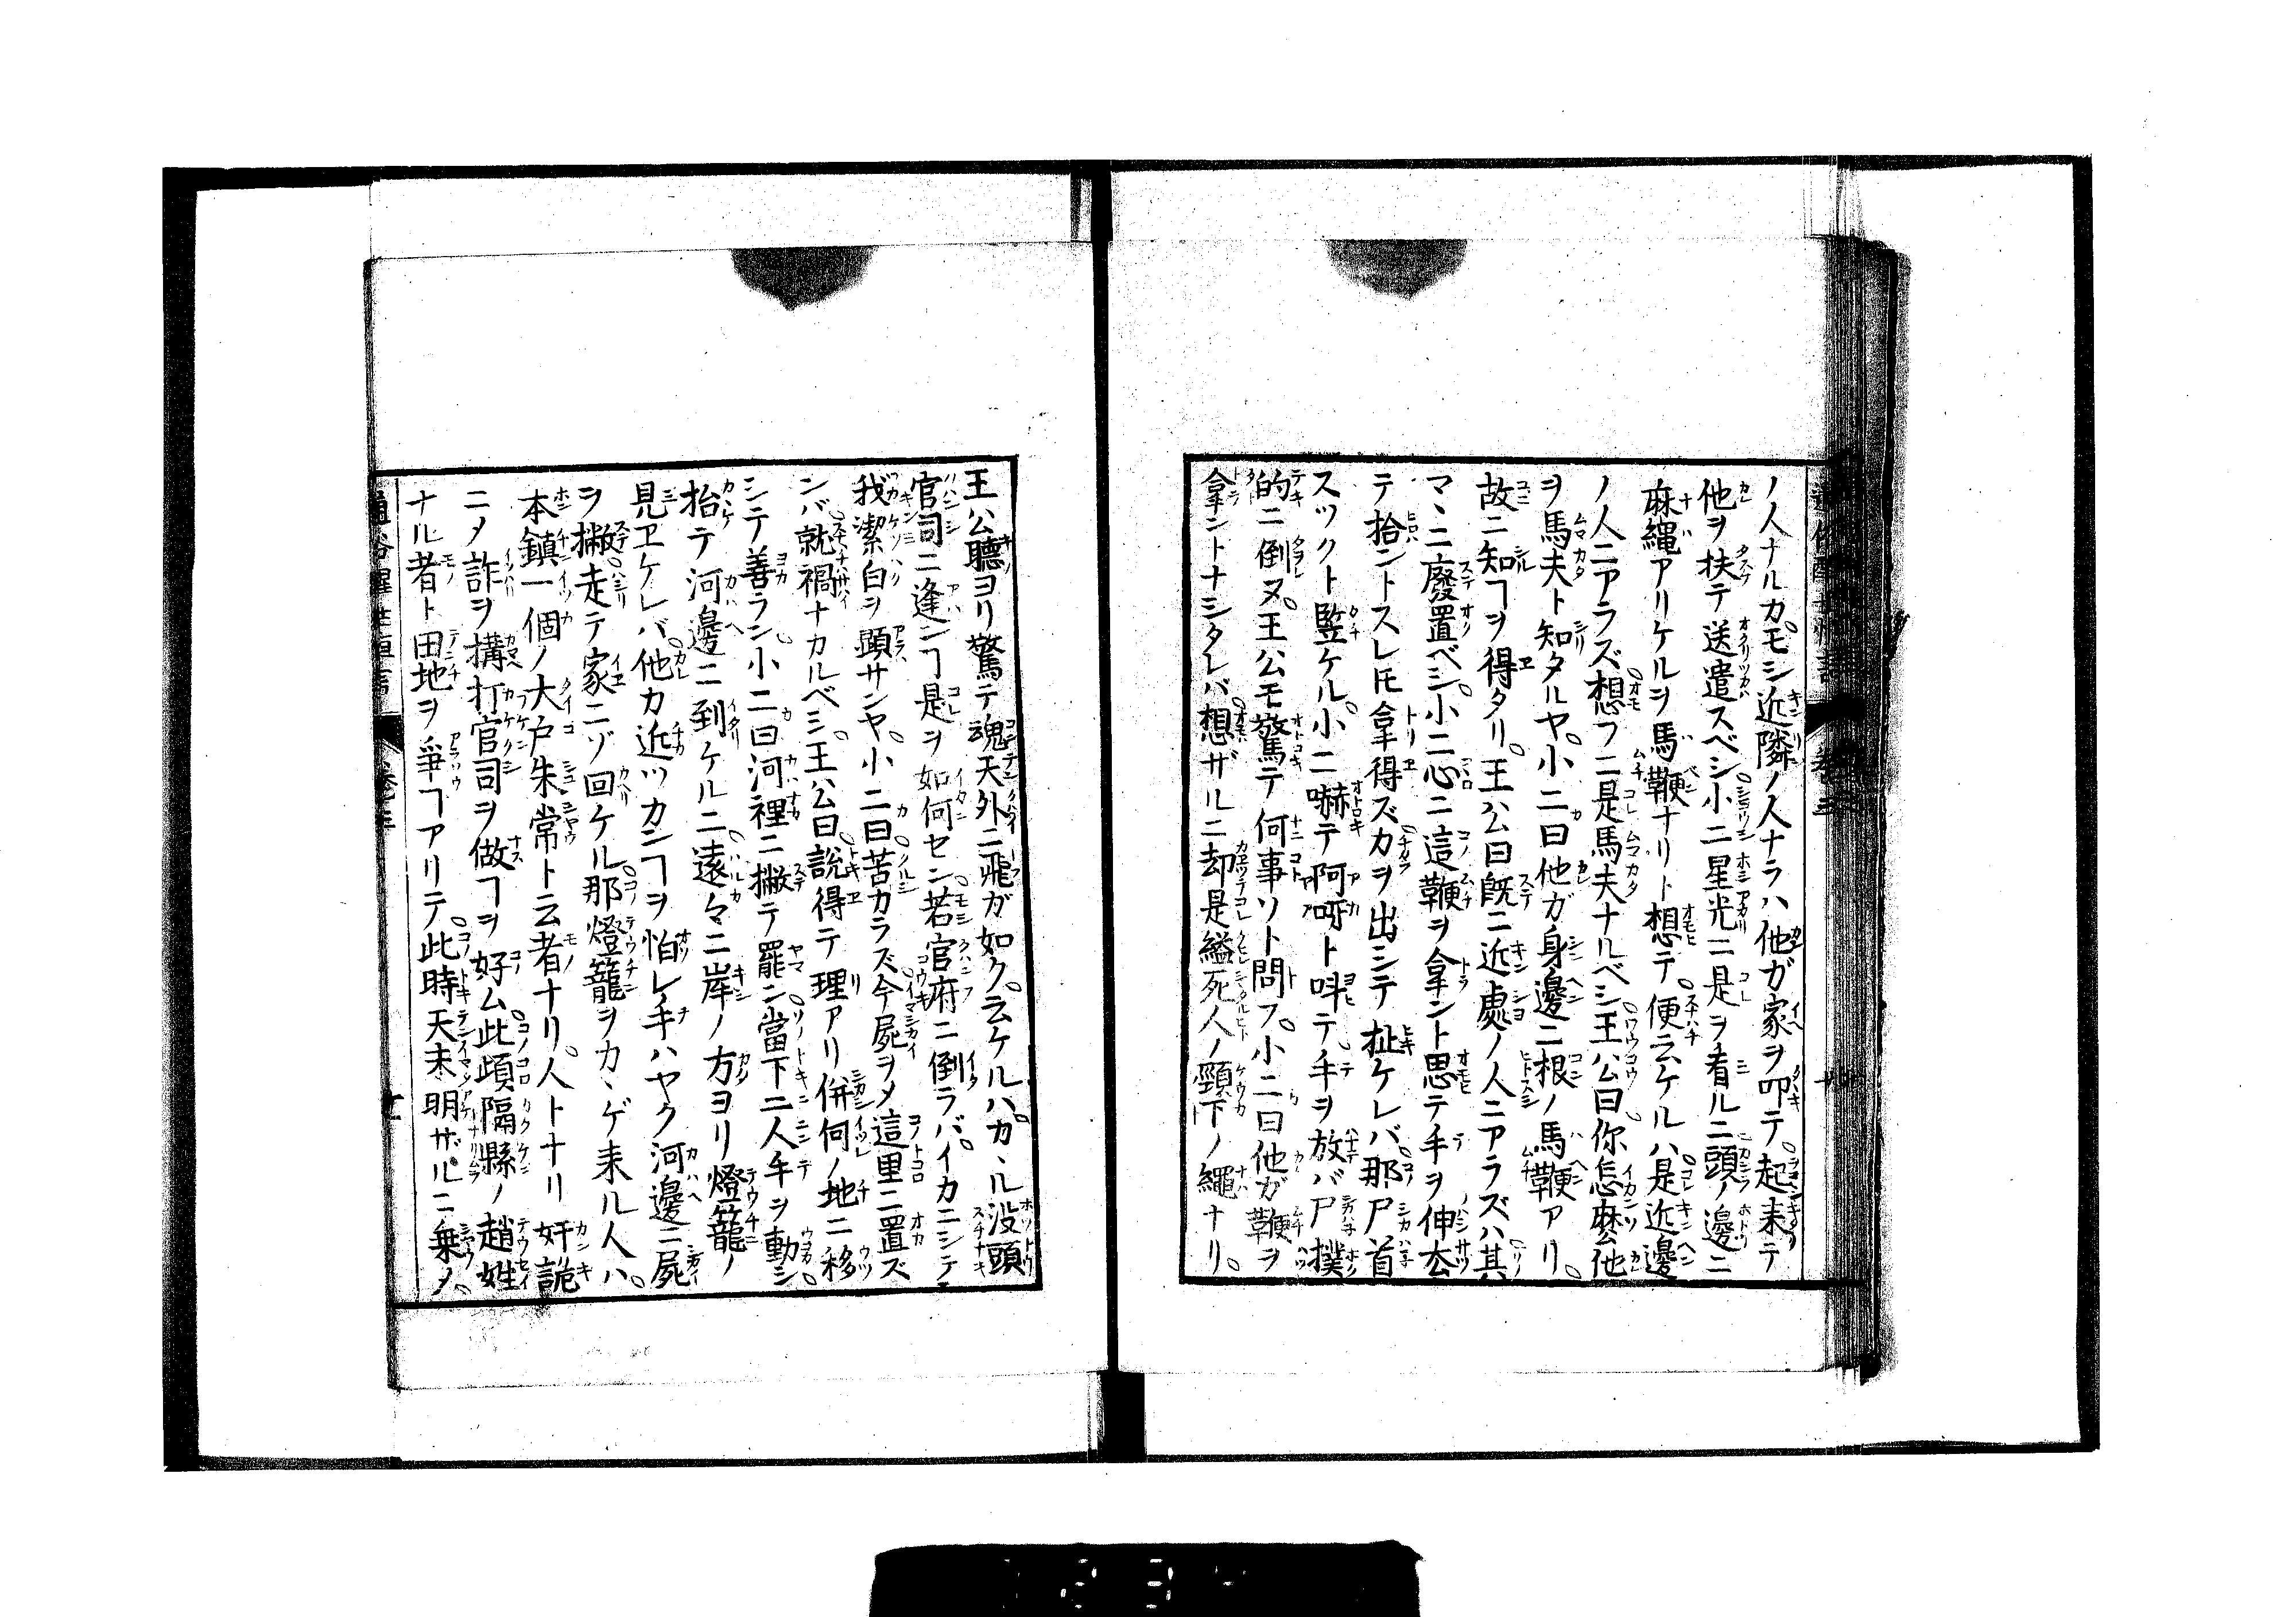 ノ人ナルカ。モシ近隣ノ人ナラハ他ガ家ヲ叩テ。起来テ
他ヲ扶テ送遣スベシ。小二星光ニ是ヲ看ルニ頭ノ邊ニ
麻縄アリケルヲ馬鞭ナリト想テ。便云ケルハ是近邊
ノ人ニアラズ。想フニ是馬夫ナルベシ。王公曰你怎麽他
ヲ馬夫ト知タルヤ。小二曰他ガ身邊ニ一根ノ馬鞭アリ。
故ニ知ヿヲ得タリ。王公曰既ニ近處ノ人ニアラズハ其
マヽニ廢置ベシ。小二心ニ這鞭ヲ拿ント思テ手ヲ伸厺
テ拾ントスレ𪜈拿得ズ。力ヲ出シテ扯ケレバ。那尸首
スックト竪ケル。小二嚇テ阿呀ト呌テ手ヲ放バ尸撲
的ニ倒ヌ。王公モ驚テ何事ソト問フ。小二曰他ガ鞭ヲ
拿ントナシタレバ。想ザルニ却是縊死人ノ頸下ノ繩ナリ。
王公聽ヨリ驚テ魂天外ニ飛ガ如ク。云ケルハ。カヽル没頭
官司ニ逢ンヿ是ヲ如何セン。若官府ニ倒ラバ。イカニシテヱ
我潔白ヲ顕サンヤ。小二曰苦カラズ。今屍ヲ〆這里ニ置ズ
ンバ就禍ナカルベシ。王公曰。説得テ理アリ。併何ノ地ニ移
シテ善ラン。小二曰河裡ニ撇テ罷ン。當下二人手ヲ動シ。
抬テ河邊ニ到ケルニ。遠々ニ岸ノ方ヨリ燈籠ノ
見ヱケレバ。他カ近ツカンヿヲ怕レ。手ハヤク河邊ニ屍
ヲ撇。走テ家ニゾ回ケル。那燈籠ヲカヽゲ来ル人ハ。
本鎮一個ノ大户朱常ト云者ナリ。人トナリ奸詭
ニ〆詐ヲ構打官司ヲ做ヿヲ好ム。此頃隔縣ノ趙姓
ナル者ト田地ヲ爭ヿアリテ。此時天未明ザルニ乗〆。
卷三